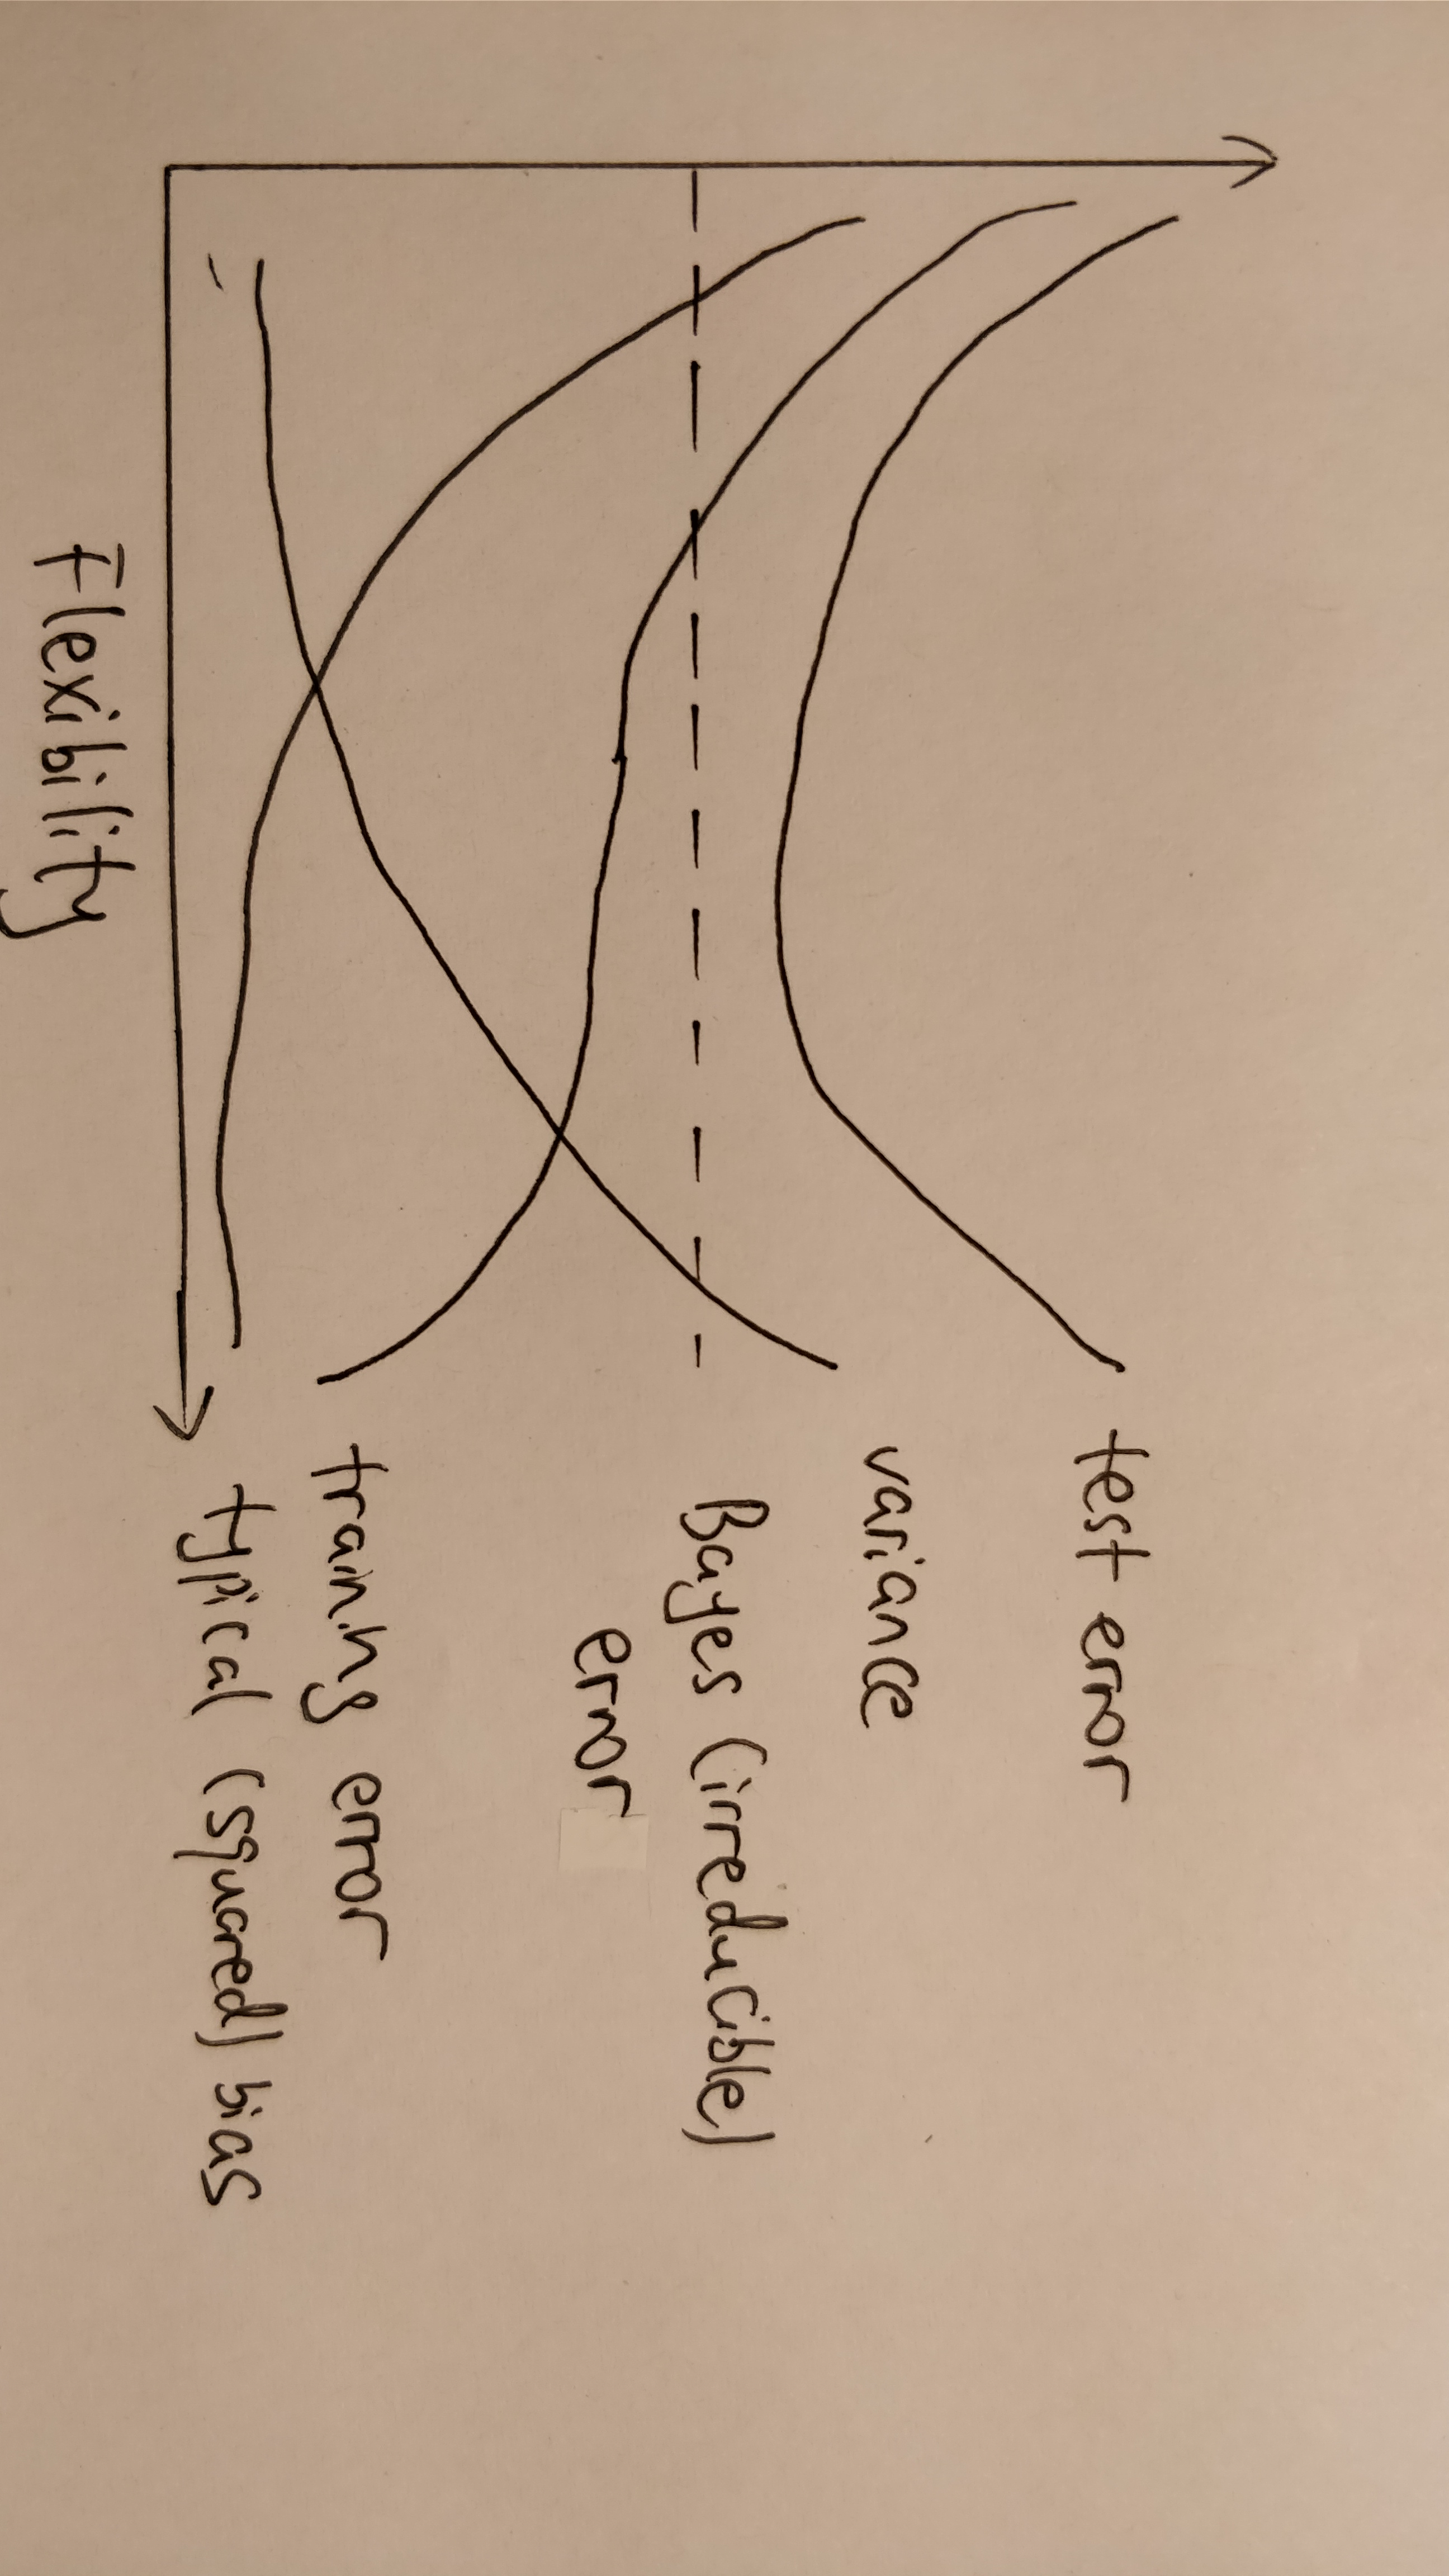 test error
variance
Bayes (irreducible)
error
training error
typical (squared) bias
Flexibility